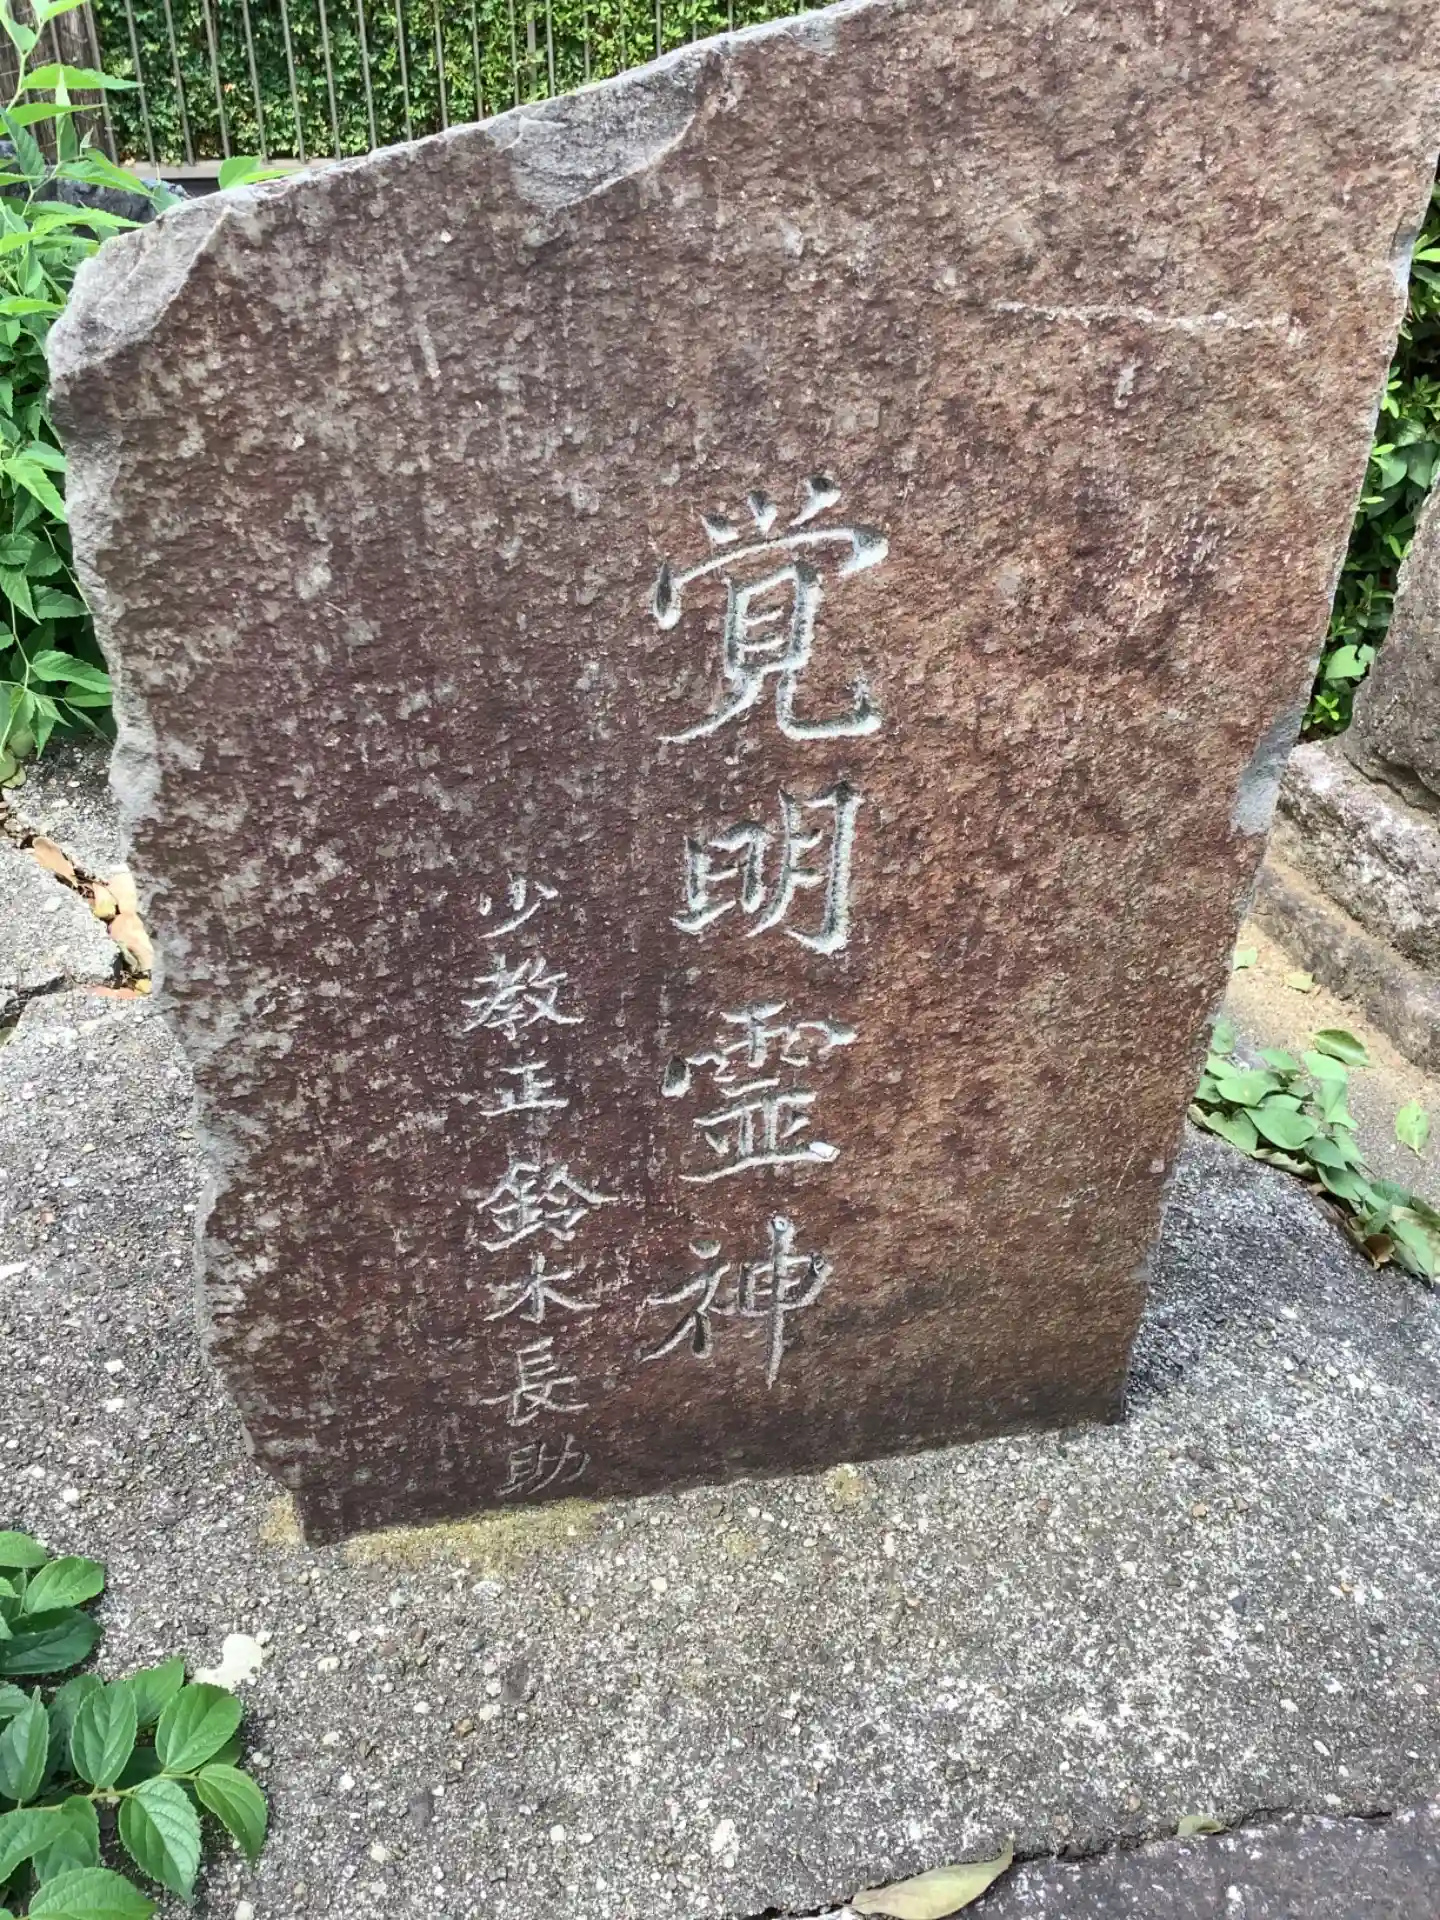 覚明霊神
少教正鈴木長助